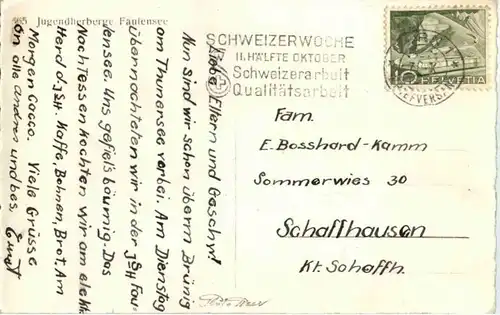 865 Jugendherberge Faulensee
Liebe Eltern und Geschw!
Nun sind wir schon überm Brünig
am Thunersee vorbei. Am Dienstag
übernachteten wir in der JSH Fau-
lensee. Uns gefiels bäumig. Das
Nachtessen kochten wir am elektr.
Herd d. JSH. Kaffe, Bohnen, Brot. Am
Morgen Cacao. Viele Grüsse
an alle andren und bes.
Ernst
SCHWEIZERWOCHE
II. HÄLFTE OKTOBER
Schweizerarbeit
Qualitätsarbeit
10 HELVETIA
Fam.
E. Bosshard-Kamm
Sommerwies 30
Schaffhausen
Kt. Schaffh.